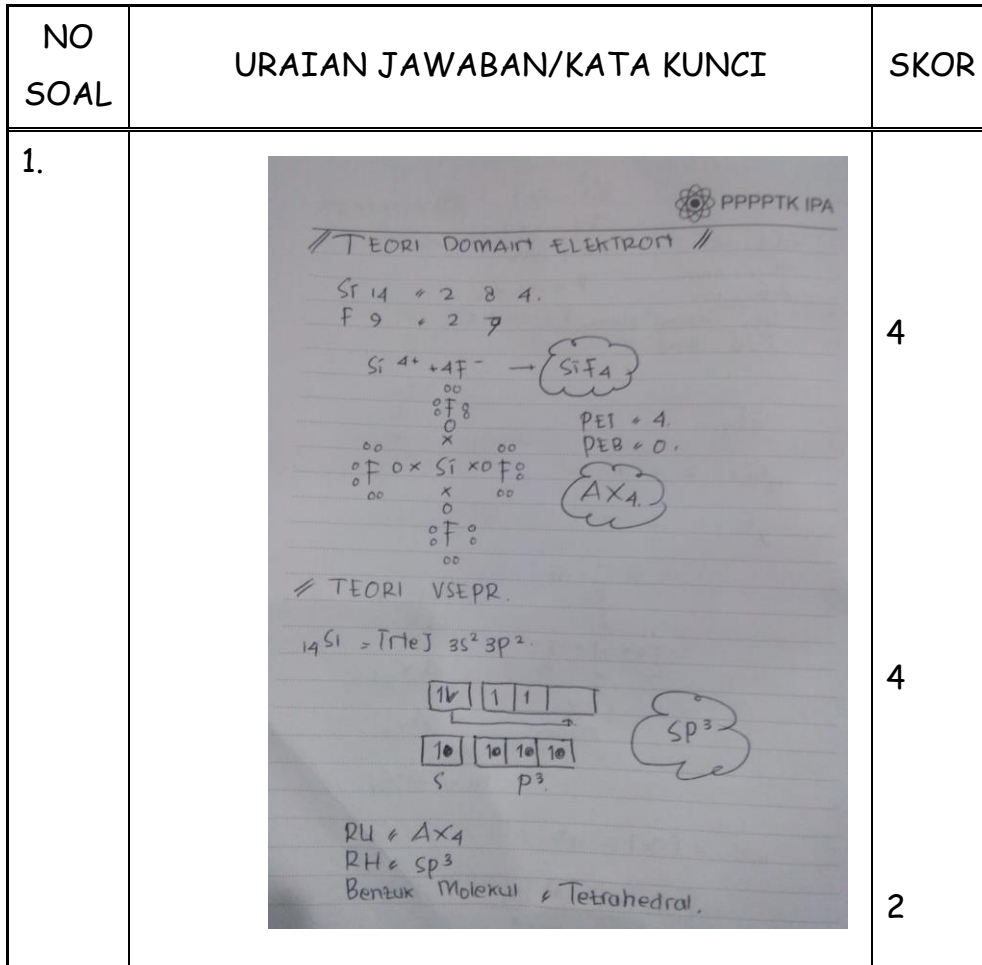 NO SOAL
URAIAN JAWABAN/KATA KUNCI
SKOR
1.
PPPPTK IPA
// TEORI DOMAIN ELEKTRON //
Si 14 = 2 8 4.
F 9 = 2 7
Si 4+ + 4F - → SiF4
F
PEI = 4.
PEB = 0.
F Si F
AX4.
F
4
// TEORI VSEPR.
14Si = [Ne] 3s² 3p².
sp³
S p³.
4
RU = AX4
RH = sp³
Bentuk Molekul = Tetrahedral.
2